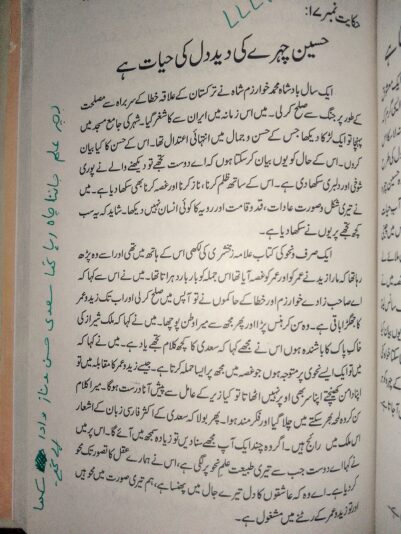 حکایت نمبر ۱۷:
حسین چہرے کی دید دل کی حیات ہے
ایک سال بادشاہ محمد خوارزم شاہ نے ترکستان کے علاقہ خطا کے سربراہ سے مصلحت
کے طور پر جنگ سے صلح کر لی۔ میں اس زمانہ میں ایران سے کاشغر گیا۔ شہر کی جامع مسجد میں
پہنچا تو ایک لڑکا دیکھا جس کے حسن و جمال میں انتہائی اعتدال تھا۔ اس کے حسن کا کیا بیان
کروں۔ اس کے حال کو یوں بیان کر سکتا ہوں کہ اے دوست تجھے تو دیکھنے والے نے پوری
شوخی اور دلبری سکھا دی ہے۔ اس کے ساتھ ظلم کرنا، ناز کرنا اور غصہ کرنا بھی سکھا دیا ہے۔ میں
نے تیری شکل و صورت عادات، قد و قامت اور رویہ کا کوئی انسان نہیں دیکھا۔ شاید کہ یہ سب
کچھ تجھے پریوں نے سکھا دیا ہے۔
ایک صرف و نحو کی کتاب علامہ زمخشری کی لکھی اس کے ہاتھ میں تھی اور اسے وہ پڑھ
رہا تھا کہ مارا زید نے عمر کو اور عمر کو غصہ آیا تھا اس جملہ کو بار بار دہراتا تھا۔ میں نے اس سے کہا کہ
اے صاحب زادے خوارزم اور خطا کے حاکموں نے تو آپس میں صلح کر لی اور اب تک زید و عمر
کا جھگڑا باقی ہے۔ وہ سن کر ہنس پڑا اور پھر مجھ سے میرا وطن پوچھا۔ میں نے کہا کہ ملک شیراز کی
خاک پاک کا باشندہ ہوں اس نے مجھے کہا کہ سعدی کا کچھ کلام تجھے یاد ہے۔ میں نے کہا کہ
میں تو ایک ایسے نحوی پر متوجہ ہوں جو غصہ میں مجھ پر ایسا حملہ کرتا ہے۔ جیسے زید و عمر کا مقابلہ میں تو
اپنا دامن کھینچتے اپنا سر بھی اوپر نہیں اٹھاتا تو کیا زیر کے عامل سے پیش آنا درست ہوگا۔ میرا کلام
سن کر وہ لمحہ بھر سکتے میں چلا گیا اور فکر مند ہوا۔ پھر بولا کہ سعدی کے اکثر فارسی زبان کے اشعار
اس ملک میں رائج ہیں۔ اگر وہ چند ایک آپ مجھے سنا دیں تو زیادہ سمجھ میں آئے گا۔ اس پر میں
نے کہا اے دوست جب سے تیری طبیعت علم نحو پر لگی ہے، اس نے ہمارے عقل کا تصور تک محو
کر دیا ہے۔ اے وہ کہ عاشقوں کا دل تیرے جال میں پھنسا ہے، ہم تیری صورت میں محو ہیں
اور تو زید و عمر کے رٹنے میں مشغول ہے۔